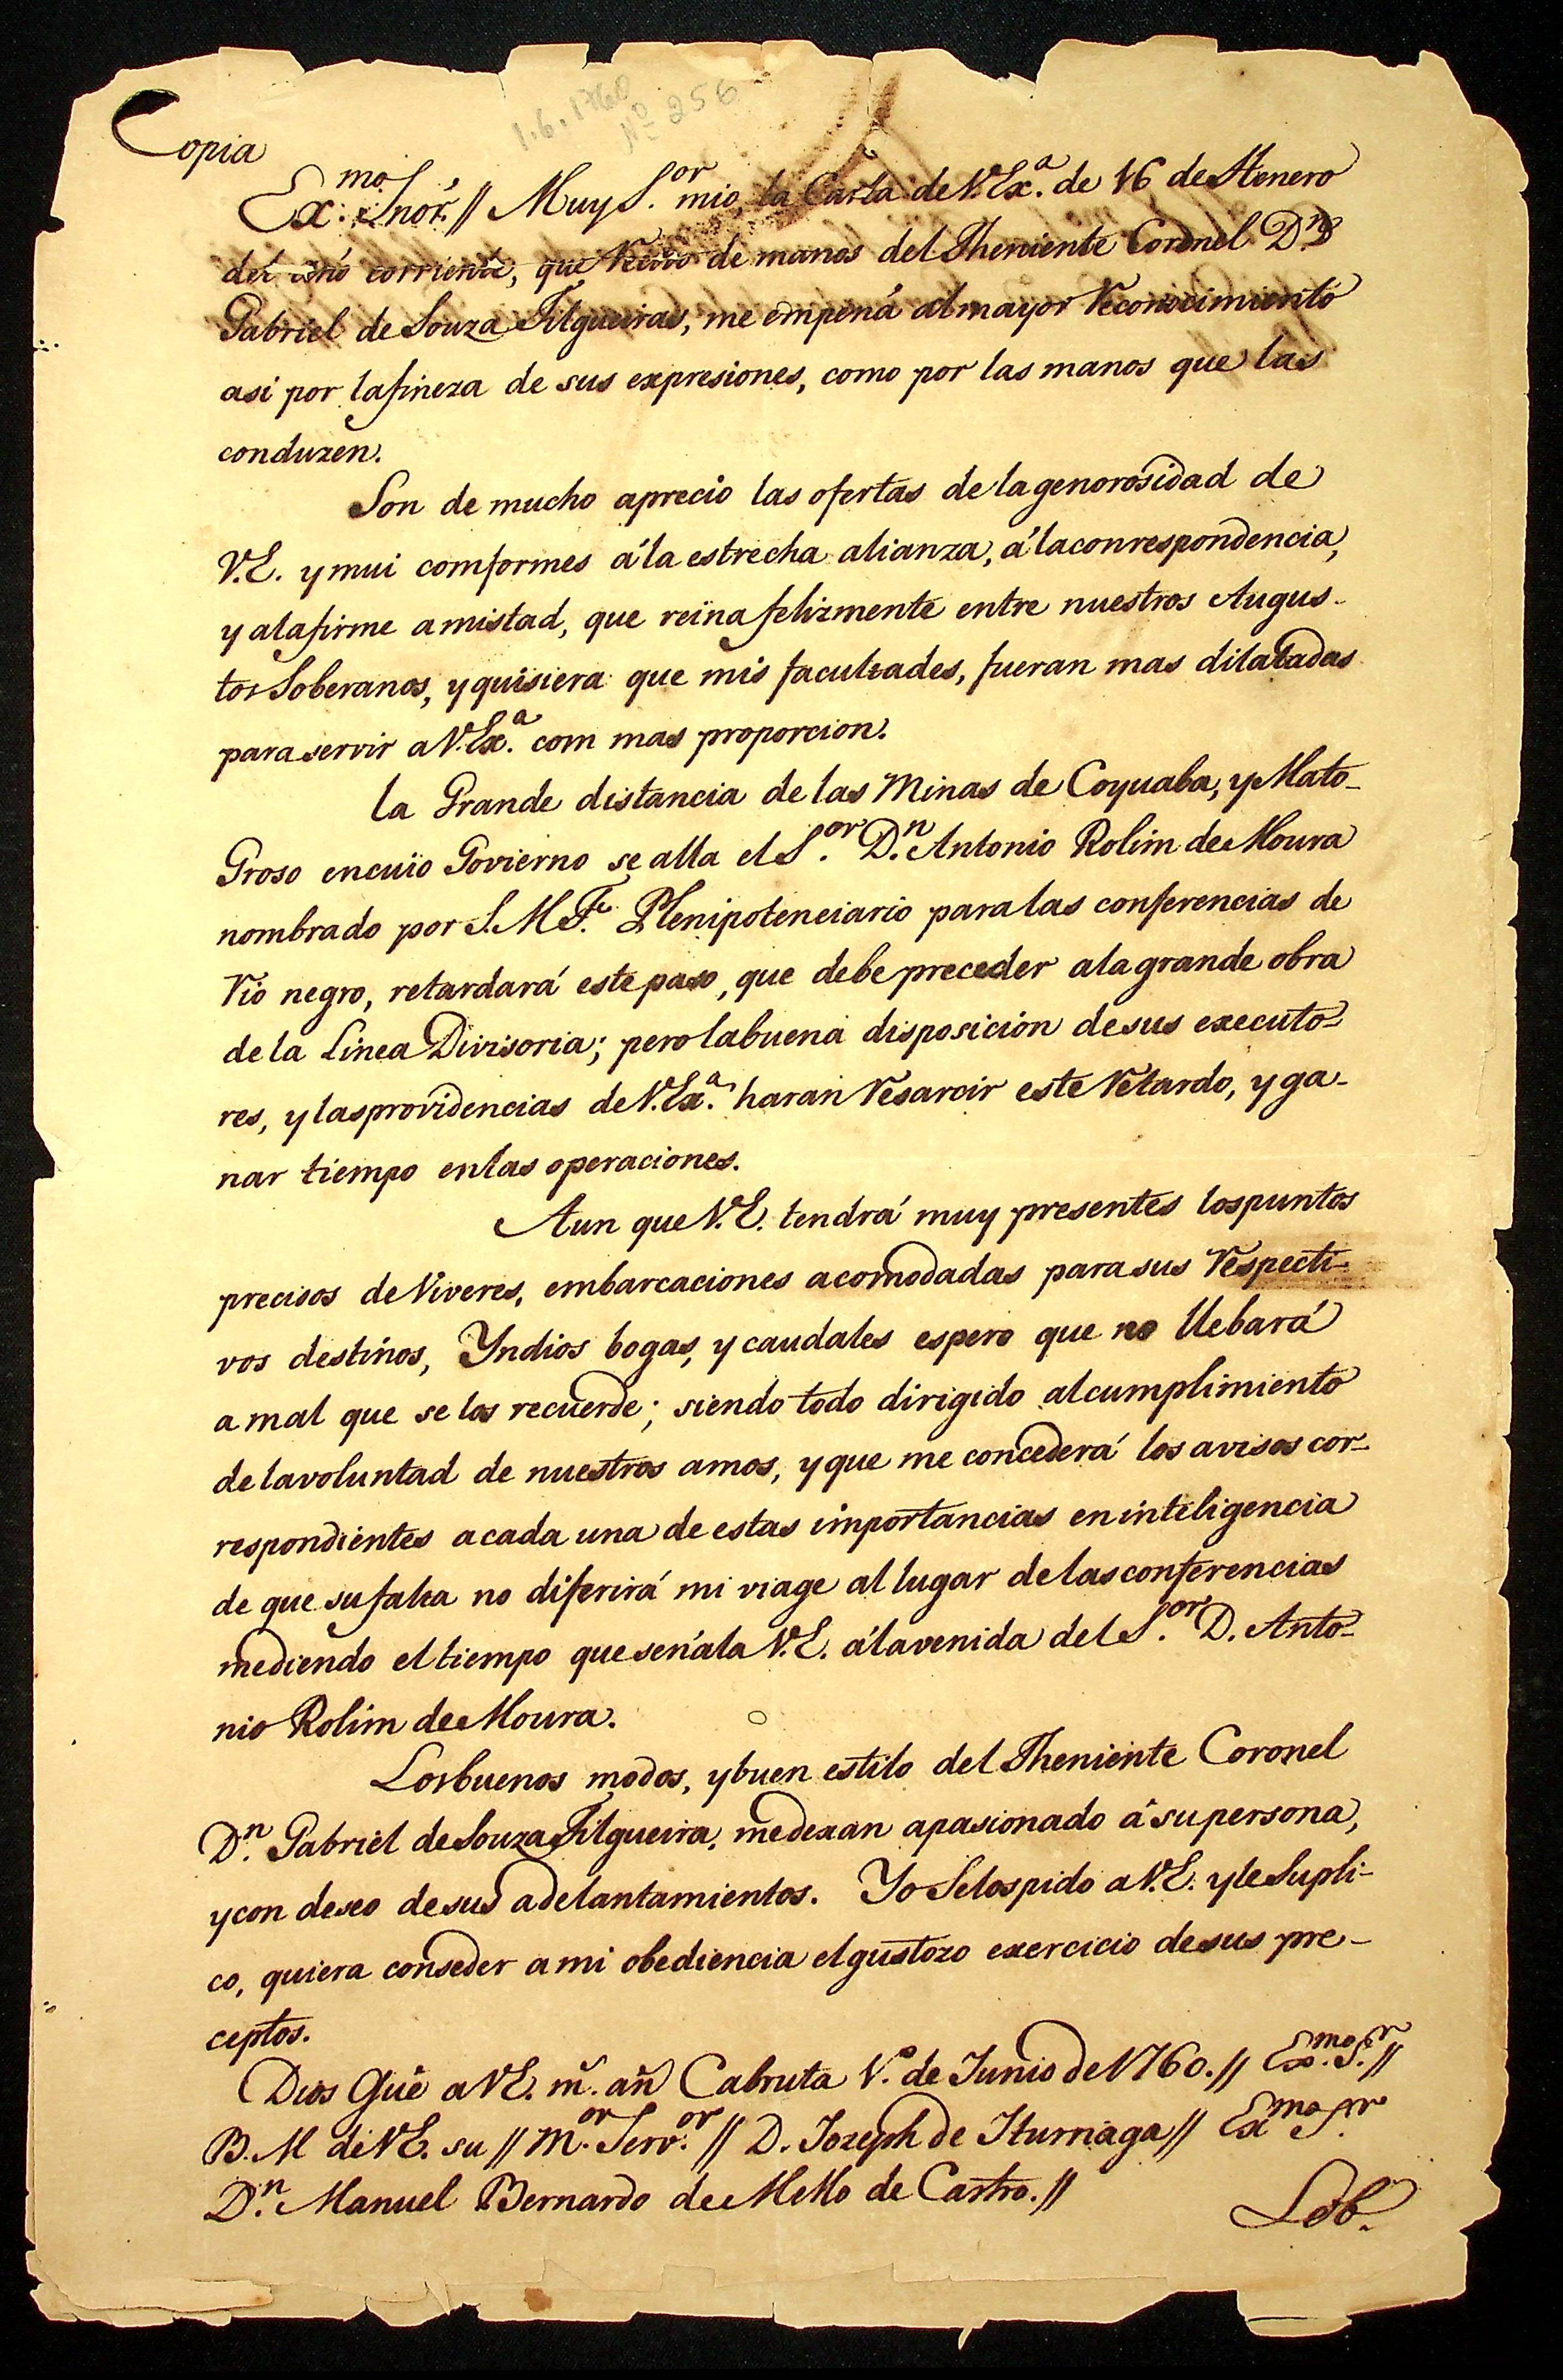 1.6.1760
Nº 256
Copia
Ex.mo Snor.// Muy S.or mio, la Carta de V.Ex.a de 16 de Henero
del año corriente, que Recivo de manos del Theniente Coronel D.n
Gabriel de Souza Filgueiras, me empeña al mayor Reconocimiento
asi por la fineza de sus expresiones, como por las manos que las
conduzen.
Son de mucho aprecio las ofertas de la genorosidad de
V.E. y mui comformes á la estrecha alianza, á la conrespondencia,
y a la firme amistad, que reïna felizmente entre nuestros Augus-
tos Soberanos, y quisiera que mis facultades, fueran mas dilatadas
para servir a V.Ex.a com mas proporcion.
la Grande distancia de las Minas de Coyuaba, y Mato-
Groso en cuio Govierno se alla el S.or D.n Antonio Rolim de Moura
nombrado por S.M.F. Plenipotenciario para las conferencias de
Rio negro, retardará este paso, que debe preceder a la grande obra
de la Linea Divizoria; pero la buena disposicion de sus executo-
res, y las providencias de V.Ex.a haran Resarcir este Retardo, y ga-
nar tiempo en las operaciones.
Aun que V.E. tendrá muy presentes los puntos
precisos de Viveres, embarcaciones acomodadas para sus Respecti-
vos destinos, Yndios bogas, y caudales espero que no llebará
a mal que se los recuerde; siendo todo dirigido al cumplimiento
de la voluntad de nuestros amos, y que me concederá los avisos cor-
respondientes a cada una de estas importancias en inteligencia
de que su falta no diferirá mi viage al lugar de las conferencias
mediendo el tiempo que señala V.E. á la venida del S.or D. Anto-
nio Rolim de Moura.
Los buenos modos, y buen estilo del Theniente Coronel
D.n Gabriel de Souza Filgueira, me dexan apasionado á su persona,
y con deseo de sus adelantamientos. Yo Se los pido a V.E. y le Supli-
co, quiera conseder a mi obediencia el gustozo exercicio de sus pre-
ceptos.
Dios Gue a V.E. m.s añ Cabruta 1.º de Junio de 1760.// Ex.mo S.r//
B.M de V.E. su // M.or Serv.or // D. Jozeph de Iturriaga // Exmo S.r
D.n Manuel Bernardo de Mello de Castro.//